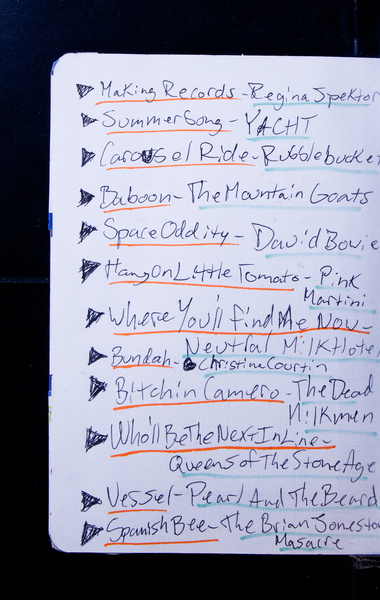 Making Records - Regina Spektor
Summer Song - YACHT
Carousel Ride - Rubblebucket
Baboon - The Mountain Goats
Space Oddity - David Bowie
Hang On Little Tomato - Pink
Martini
Where You'll find Me Now -
Neutral Milk Hotel
Bundah - Christina Courtin
Bitchin Camero - The Dead
Milkmen
Who'll Be The Next In Line -
Queens of The Stone Age
Vessel - Pearl And The Beard
Spanish Bee - The Brian Jonesto
Masacre